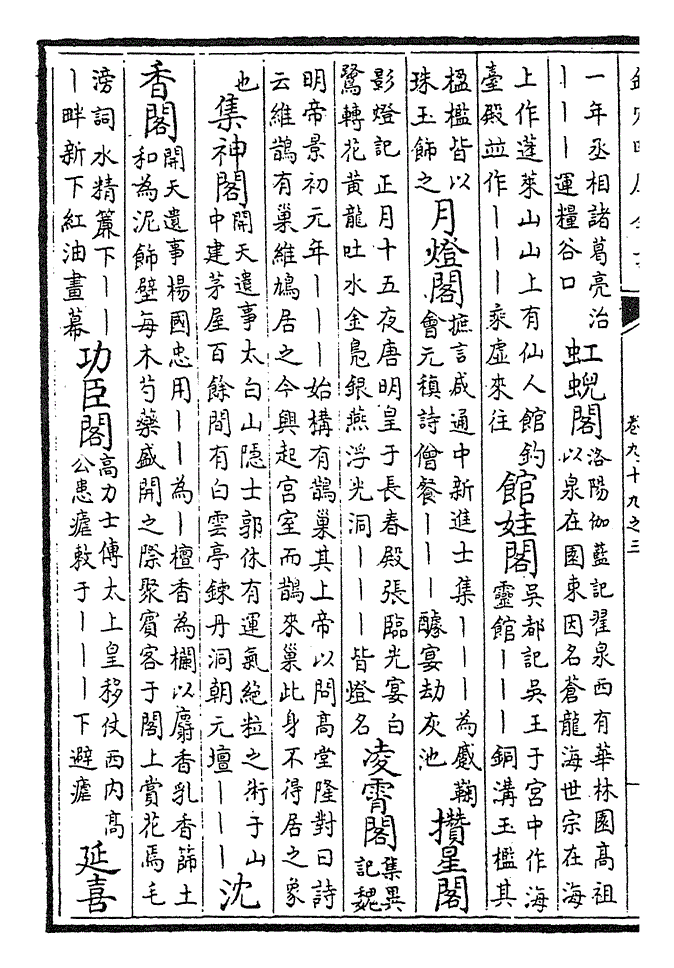 卷九十九之三
一年丞相諸葛亮治
｜｜｜運糧谷口
虹蜺閣
洛陽伽藍記翟泉西有華林園高祖
以泉在園東因名蒼龍海世宗在海
上作蓬萊山山上有仙人館釣
臺殿並作｜｜｜乘虛來往
館娃閣
吳都記吳王于宮中作海
靈館｜｜｜銅溝玉檻其
楹檻皆以
珠玉飾之
月燈閣
摭言咸通中新進士集｜｜｜為蹙鞠
會元稹詩僧餐｜｜｜醵宴劫灰池
攢星閣
影燈記正月十五夜唐明皇于長春殿張臨光宴白
鷺轉花黃龍吐水金鳧銀燕浮光洞｜｜｜皆燈名
凌霄閣
集異
記魏
明帝景初元年｜｜｜始構有鵲巢其上帝以問高堂隆對曰詩
云維鵲有巢維鳩居之今興起宮室而鵲來巢此身不得居之象
也
集神閣
開天遺事太白山隱士郭休有運氣絕粒之術于山
中建茅屋百餘間有白雲亭鍊丹洞朝元壇｜｜｜
沈
香閣
開天遺事楊國忠用｜｜為｜檀香為欄以麝香乳香篩土
和為泥飾壁每木芍藥盛開之際聚賓客于閣上賞花焉毛
滂詞水精簾下｜｜
｜畔新下紅油畫幕
功臣閣
高力士傳太上皇移仗西內高
公患瘧敕于｜｜｜下避瘧
延喜